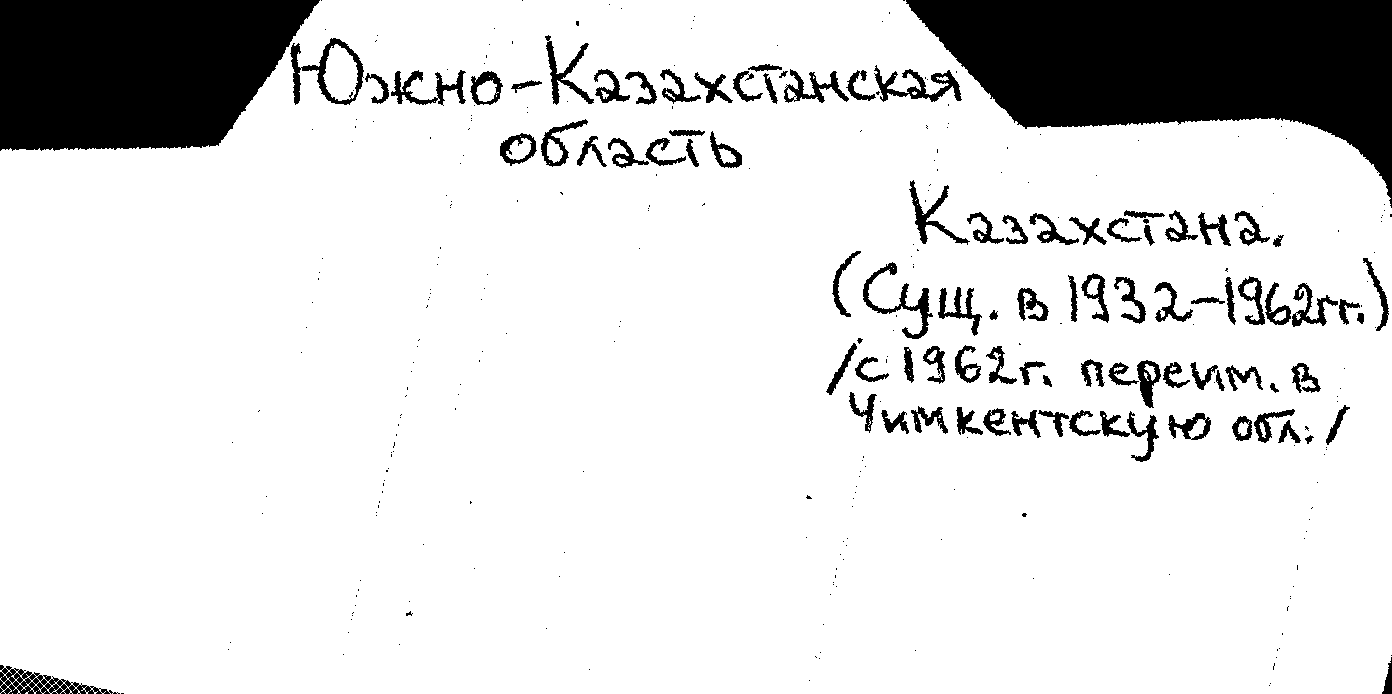 Южно-Казахстанская
область
Казахстана.
(Сущ. в 1932-1962гг.)
/с 1962г. переим. в
Чимкентскую обл./